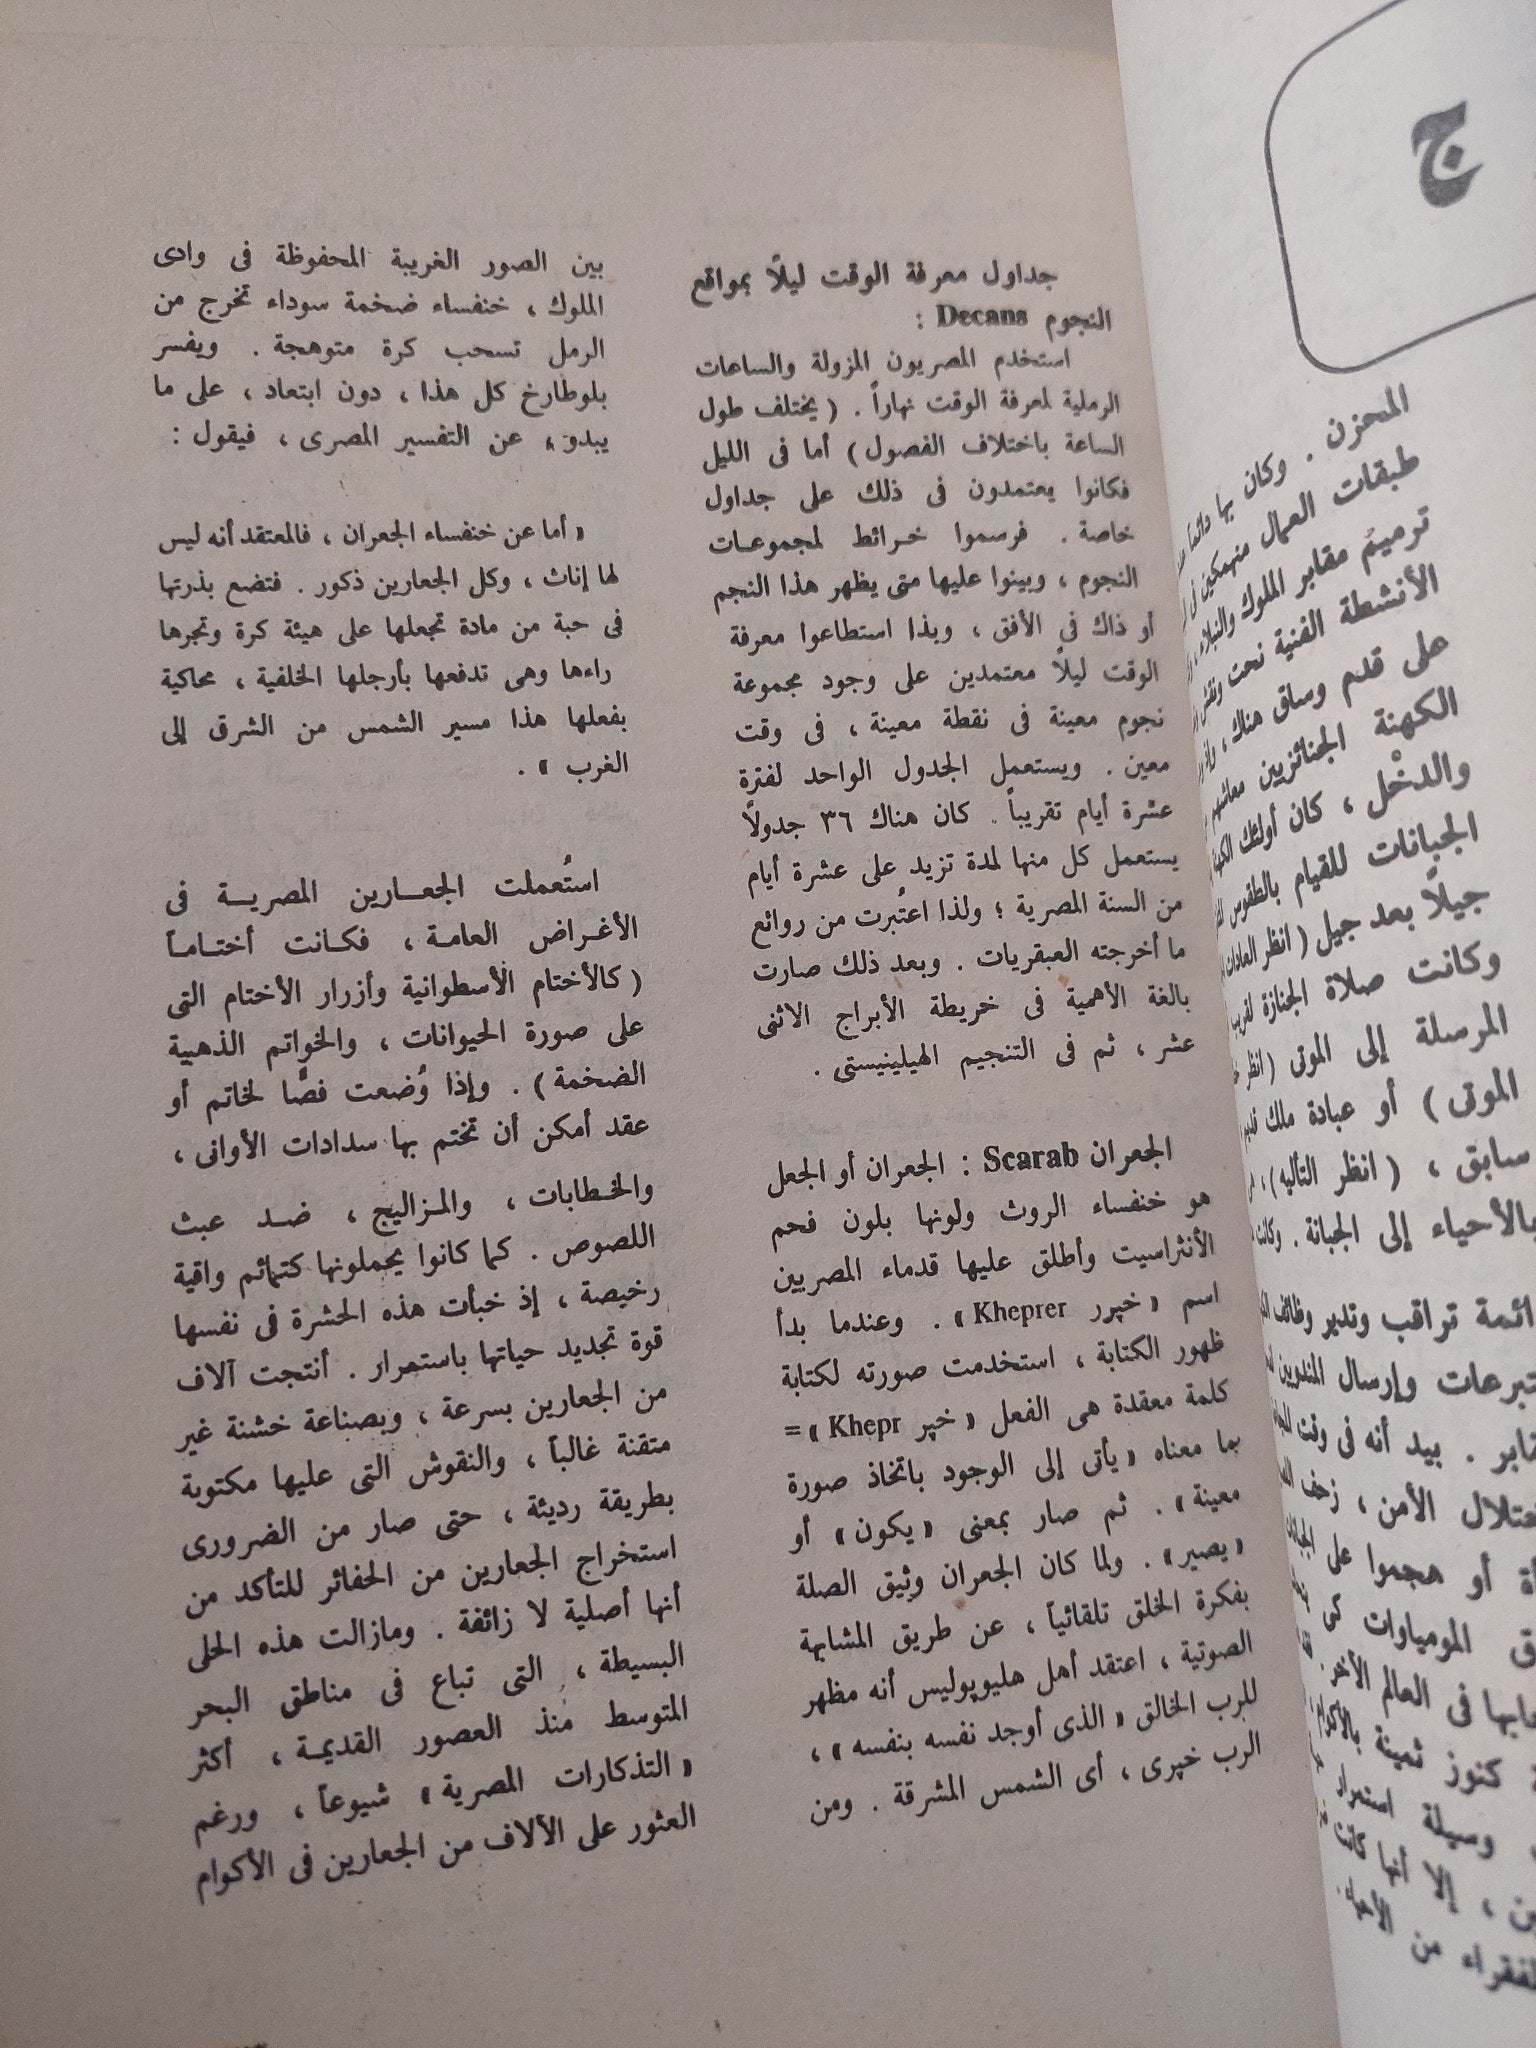 ج
المحزن . وكان بها دائماً
طبقات العمال منهمكين فى
ترميم مقابر الملوك والنبلاء ،
الأنشطة الفنية نحت ونقش
على قدم وساق هناك ،
الكهنة الجنائزيين معاشهم
والدخْل ، كان أولئك
الجبانات للقيام بالطقوس
جيلاً بعد جيل ( انظر العادات
وكانت صلاة الجنازة
المرسلة إلى الموتى ( انظر
الموتى ) أو عبادة ملك
سابق ، ( انظر التأليه ) ،
بالأحياء إلى الجبانة . وكانت
تراقب وتدير وظائف
وإرسال المندوبين
بيد أنه فى وقت
الأمن ، زحف
أو هجموا على
المومياوات كى
فى العالم الآخر .
كنوز ثمينة
وسيلة استمرار
، إلا أنها كانت
من الأحياء .
جداول معرفة الوقت ليلاً بمواقع
النجوم Decans :
استخدم المصريون المزولة والساعات
الرملية لمعرفة الوقت نهاراً . ( يختلف طول
الساعة باختلاف الفصول ) أما فى الليل
فكانوا يعتمدون فى ذلك على جداول
خاصة . فرسموا خرائط لمجموعات
النجوم ، وبينوا عليها متى يظهر هذا النجم
أو ذاك فى الأفق ، وبذا استطاعوا معرفة
الوقت ليلاً معتمدين على وجود مجموعة
نجوم معينة فى نقطة معينة ، فى وقت
معين . ويستعمل الجدول الواحد لفترة
عشرة أيام تقريباً . كان هناك ٣٦ جدولاً
يستعمل كل منها لمدة تزيد على عشرة أيام
من السنة المصرية ؛ ولذا اعتُبرت من روائع
ما أخرجته العبقريات . وبعد ذلك صارت
بالغة الأهمية فى خريطة الأبراج الاثنى
عشر ، ثم فى التنجيم الهيلينيستى .
الجعران Scarab : الجعران أو الجعل
هو خنفساء الروث ولونها بلون فحم
الأنثراسيت وأطلق عليها قدماء المصريين
اسم « خپرر Kheprer » . وعندما بدأ
ظهور الكتابة ، استخدمت صورته لكتابة
كلمة معقدة هى الفعل « خپر Khepr » =
بما معناه « يأتى إلى الوجود باتخاذ صورة
معينة » . ثم صار بمعنى « يكون » أو
« يصير » . ولما كان الجعران وثيق الصلة
بفكرة الخلق تلقائياً ، عن طريق المشابهة
الصوتية ، اعتقد أهل هليوپوليس أنه مظهر
للرب الخالق « الذى أوجد نفسه بنفسه » ،
الرب خپرى ، أى الشمس المشرقة . ومن
بين الصور الغريبة المحفوظة فى وادى
الملوك ، خنفساء ضخمة سوداء تخرج من
الرمل تسحب كرة متوهجة . ويفسر
بلوطارخ كل هذا ، دون ابتعاد ، على ما
يبدو ، عن التفسير المصرى ، فيقول :
« أما عن خنفساء الجعران ، فالمعتقد أنه ليس
لها إناث ، وكل الجعارين ذكور . فتضع بذرتها
فى حبة من مادة تجعلها على هيئة كرة وتجرها
راءها وهى تدفعها بأرجلها الخلفية ، محاكية
بفعلها هذا مسير الشمس من الشرق إلى
الغرب » .
استُعملت الجعارين المصرية فى
الأغراض العامة ، فكانت أختاماً
( كالأختام الأسطوانية وأزرار الأختام التى
على صورة الحيوانات ، والخواتم الذهبية
الضخمة ) . وإذا وُضعت فصًّا لخاتم أو
عقد أمكن أن تختم بها سدادات الأوانى ،
والخطابات ، والمزاليج ، ضد عبث
اللصوص . كما كانوا يحملونها كتمائم واقية
رخيصة ، إذ خبأت هذه الحشرة فى نفسها
قوة تجديد حياتها باستمرار . أنتجت آلاف
من الجعارين بسرعة ، وبصناعة خشنة غير
متقنة غالباً ، والنقوش التى عليها مكتوبة
بطريقة رديئة ، حتى صار من الضرورى
استخراج الجعارين من الحفائر للتأكد من
أنها أصلية لا زائفة . ومازالت هذه الحلى
البسيطة ، التى تباع فى مناطق البحر
المتوسط منذ العصور القديمة ، أكثر
« التذكارات المصرية » شيوعاً ، ورغم
العثور على الآلاف من الجعارين فى الأكوام